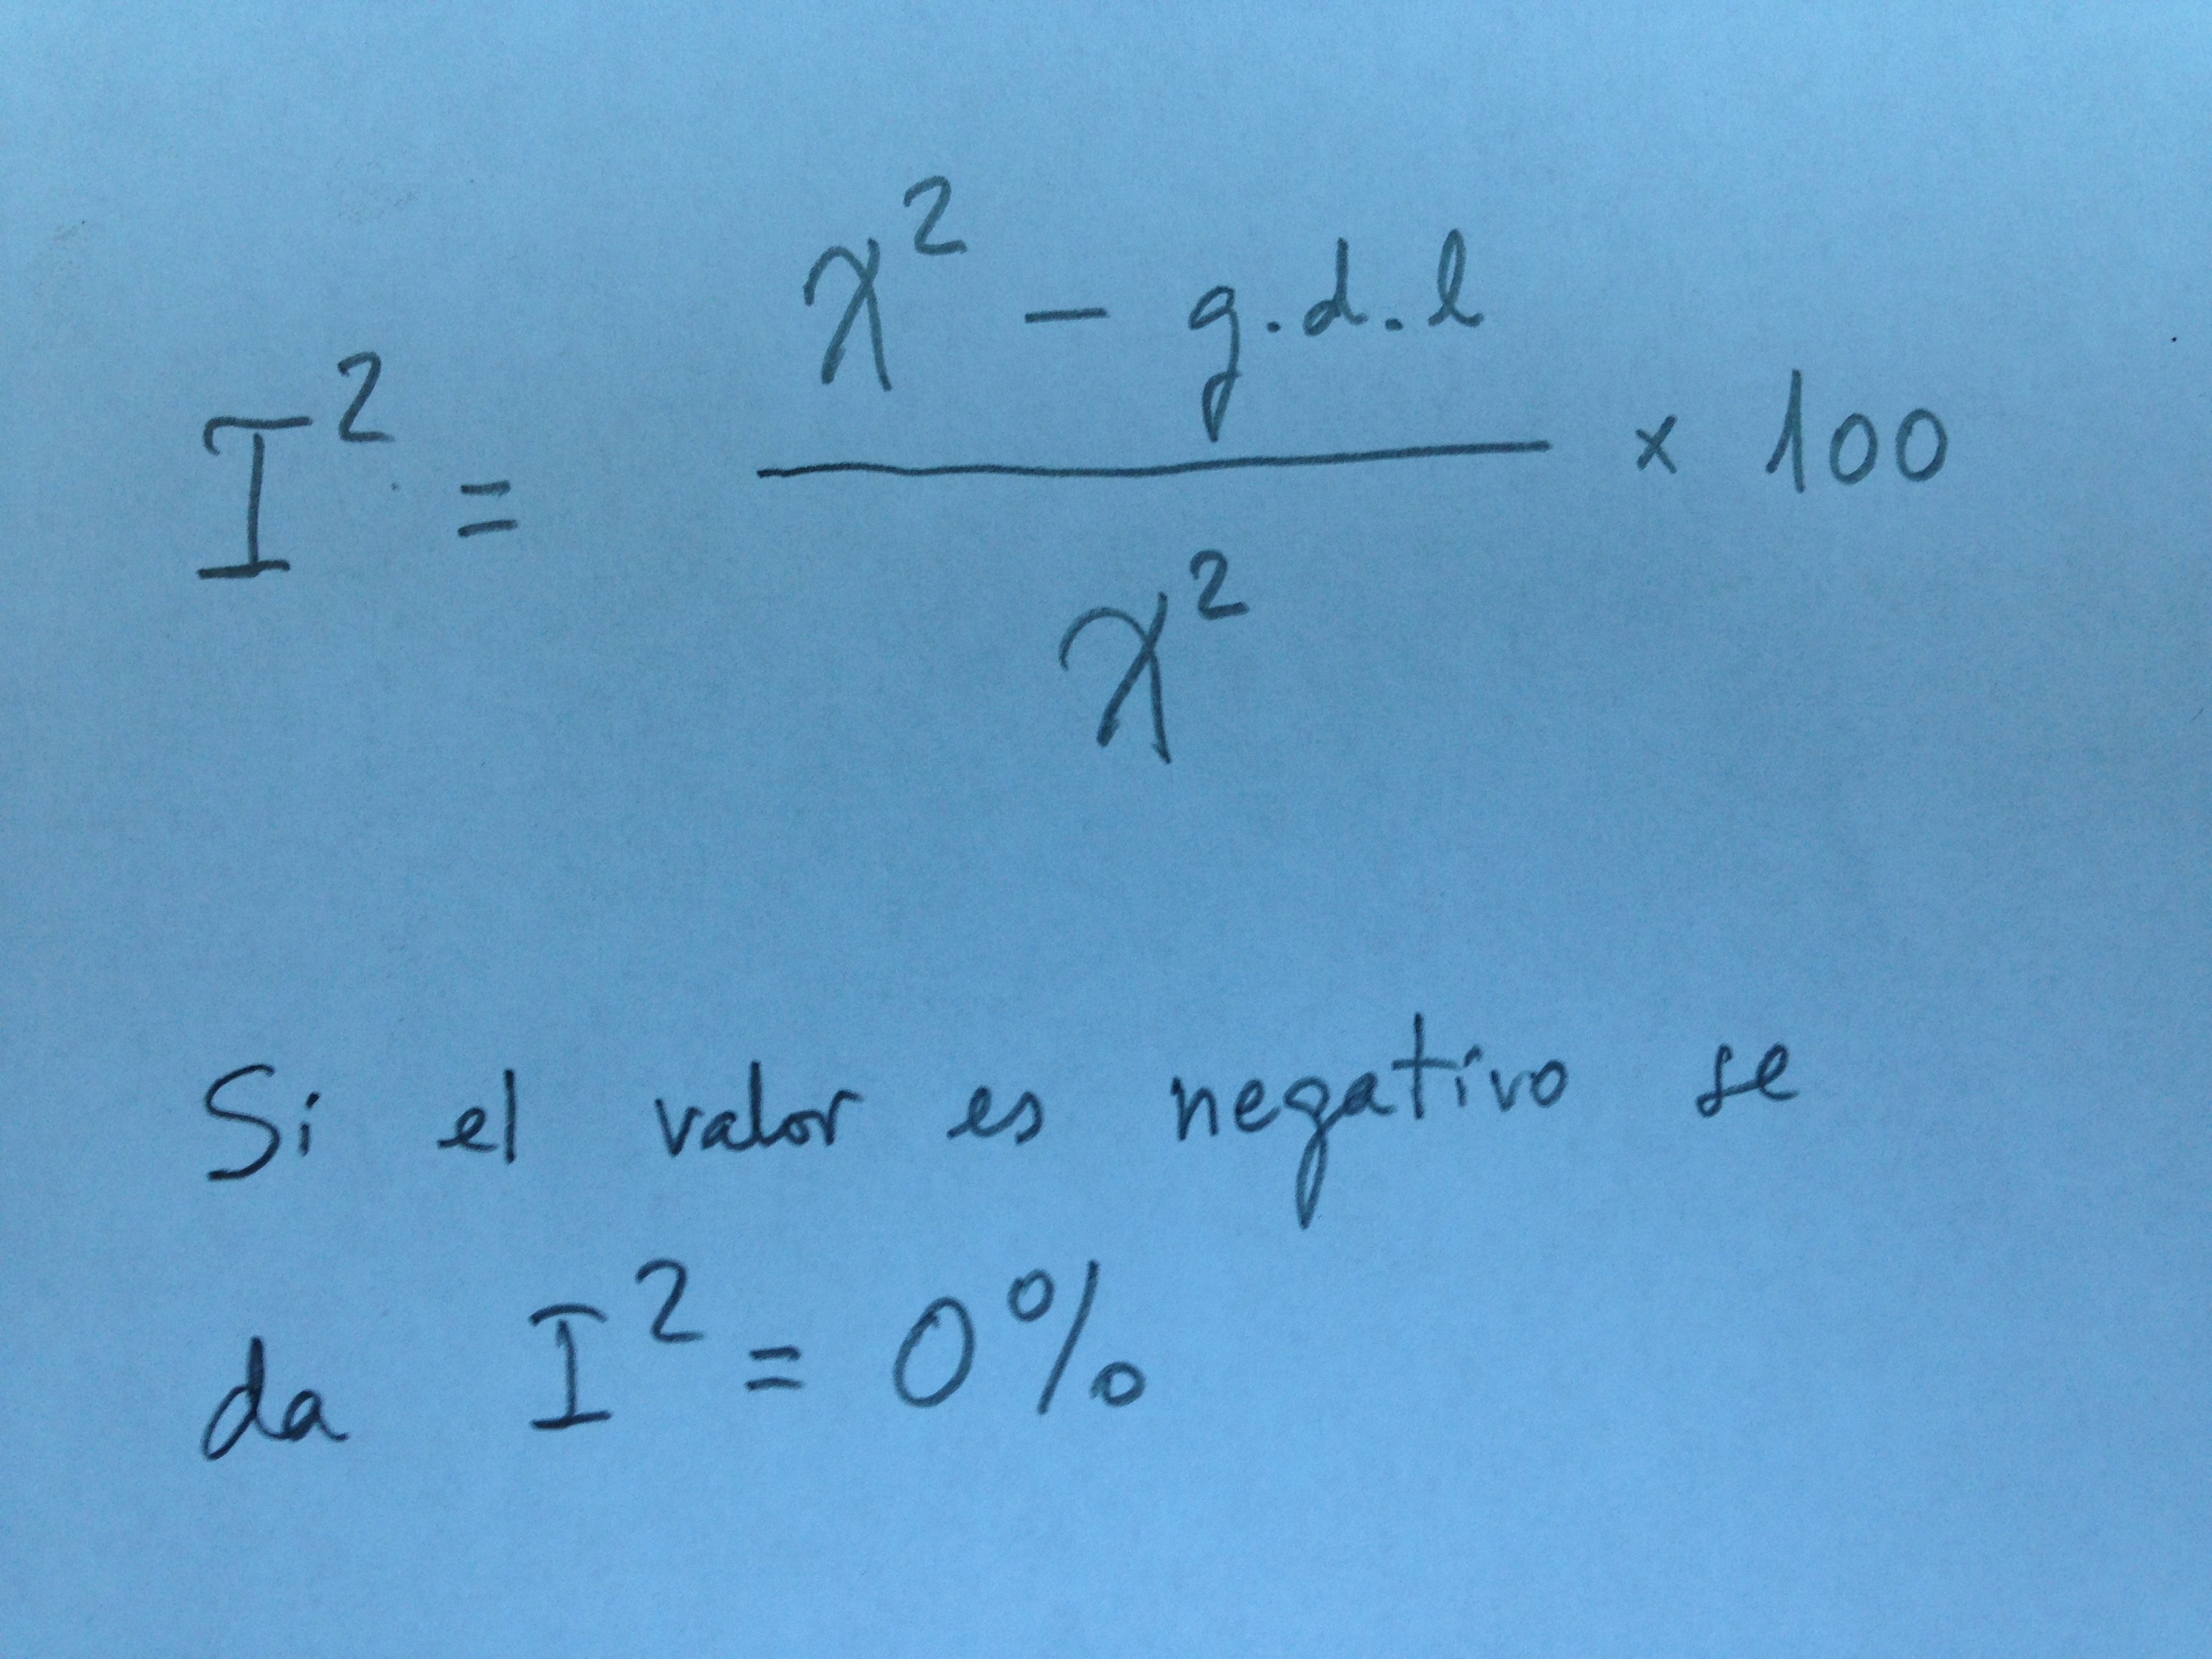 I² = (χ² - g.d.l) / χ² × 100
Si el valor es negativo se
da I² = 0%